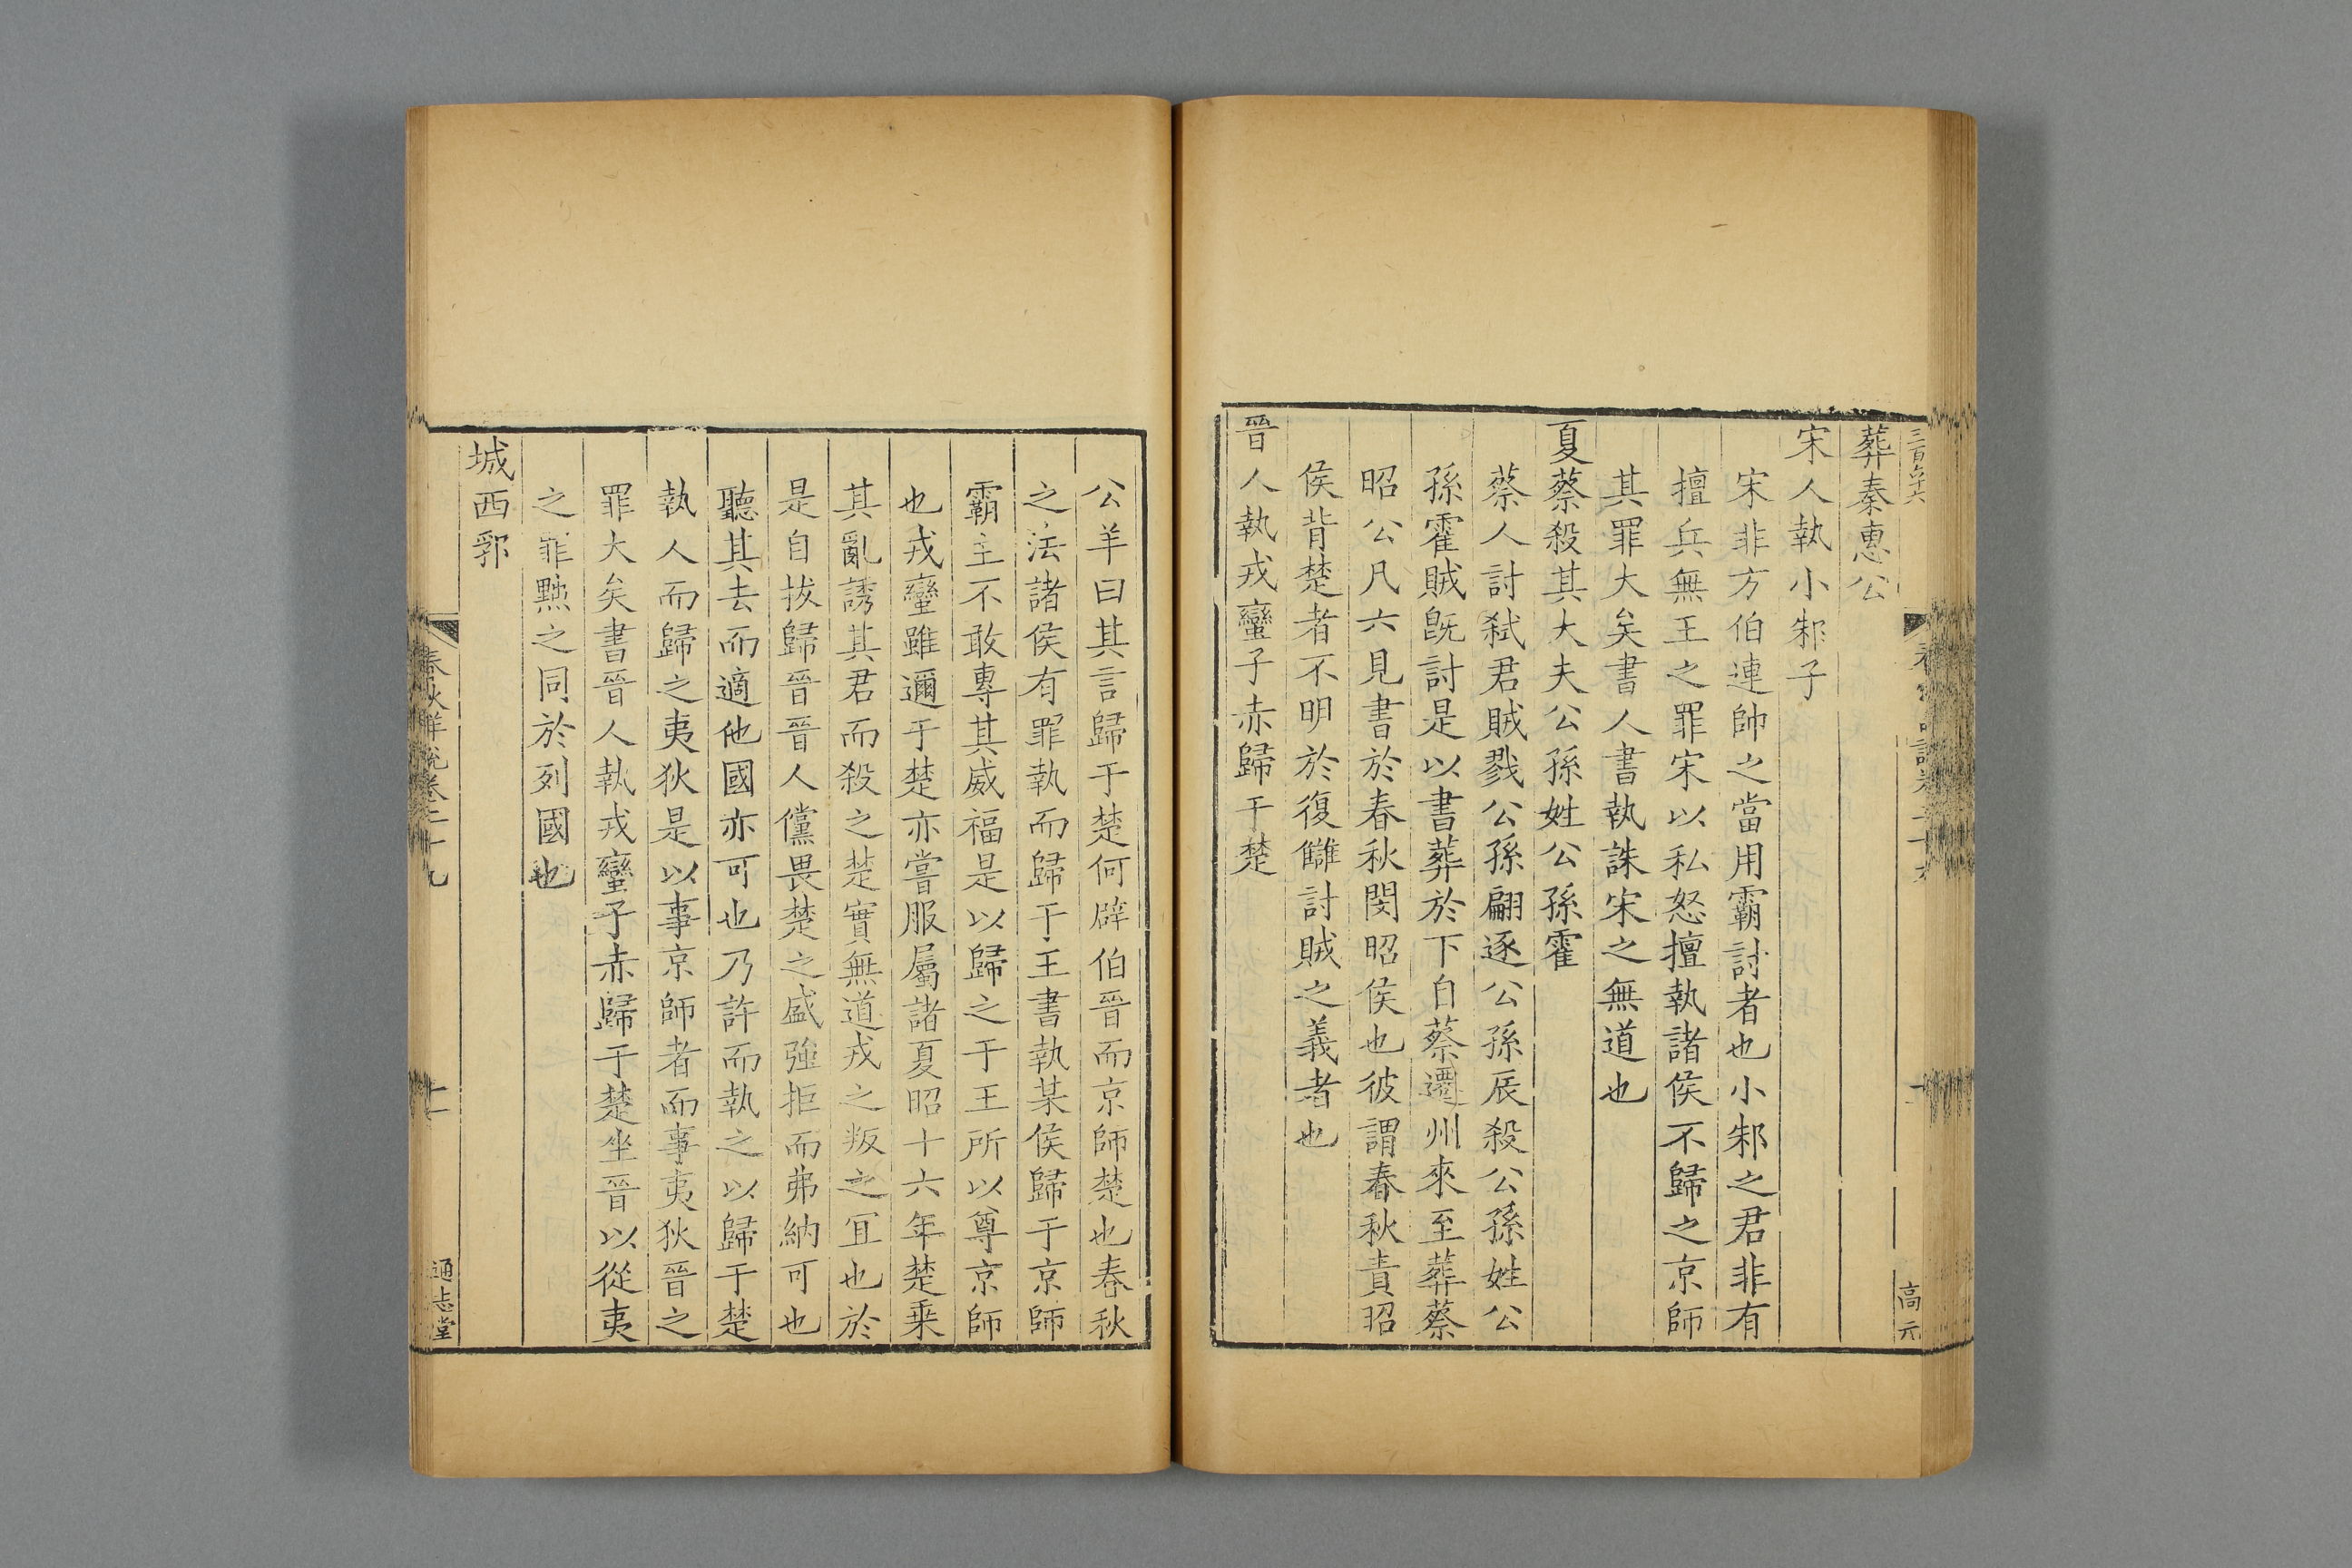 葬秦惠公
宋人執小邾子
宋非方伯連帥之當用霸討者也小邾之君非有
擅兵無王之罪宋以私怒擅執諸侯不歸之京師
其罪大矣書人書執誅宋之無道也
夏蔡殺其大夫公孫姓公孫霍
蔡人討弑君賊戮公孫翩逐公孫辰殺公孫姓公
孫霍賊旣討是以書葬於下自蔡遷州來至葬蔡
昭公凡六見書於春秋閔昭侯也彼謂春秋責昭
侯背楚者不明於復讎討賊之義者也
晉人執戎蠻子赤歸于楚
高元
公羊曰其言歸于楚何辟伯晉而京師楚也春秋
之法諸侯有罪執而歸于王書執某侯歸于京師
霸主不敢專其威福是以歸之于王所以尊京師
也戎蠻雖邇于楚亦嘗服屬諸夏昭十六年楚乗
其亂誘其君而殺之楚實無道戎之叛之冝也於
是自拔歸晉晉人儻畏楚之盛強拒而弗納可也
聽其去而適他國亦可也乃許而執之以歸于楚
執人而歸之夷狄是以事京師者而事夷狄晉之
罪大矣書晉人執戎蠻子赤歸于楚坐晉以從夷
之罪黜之同於列國也
城西郛
春秋詳説卷二十九
十一
通志堂